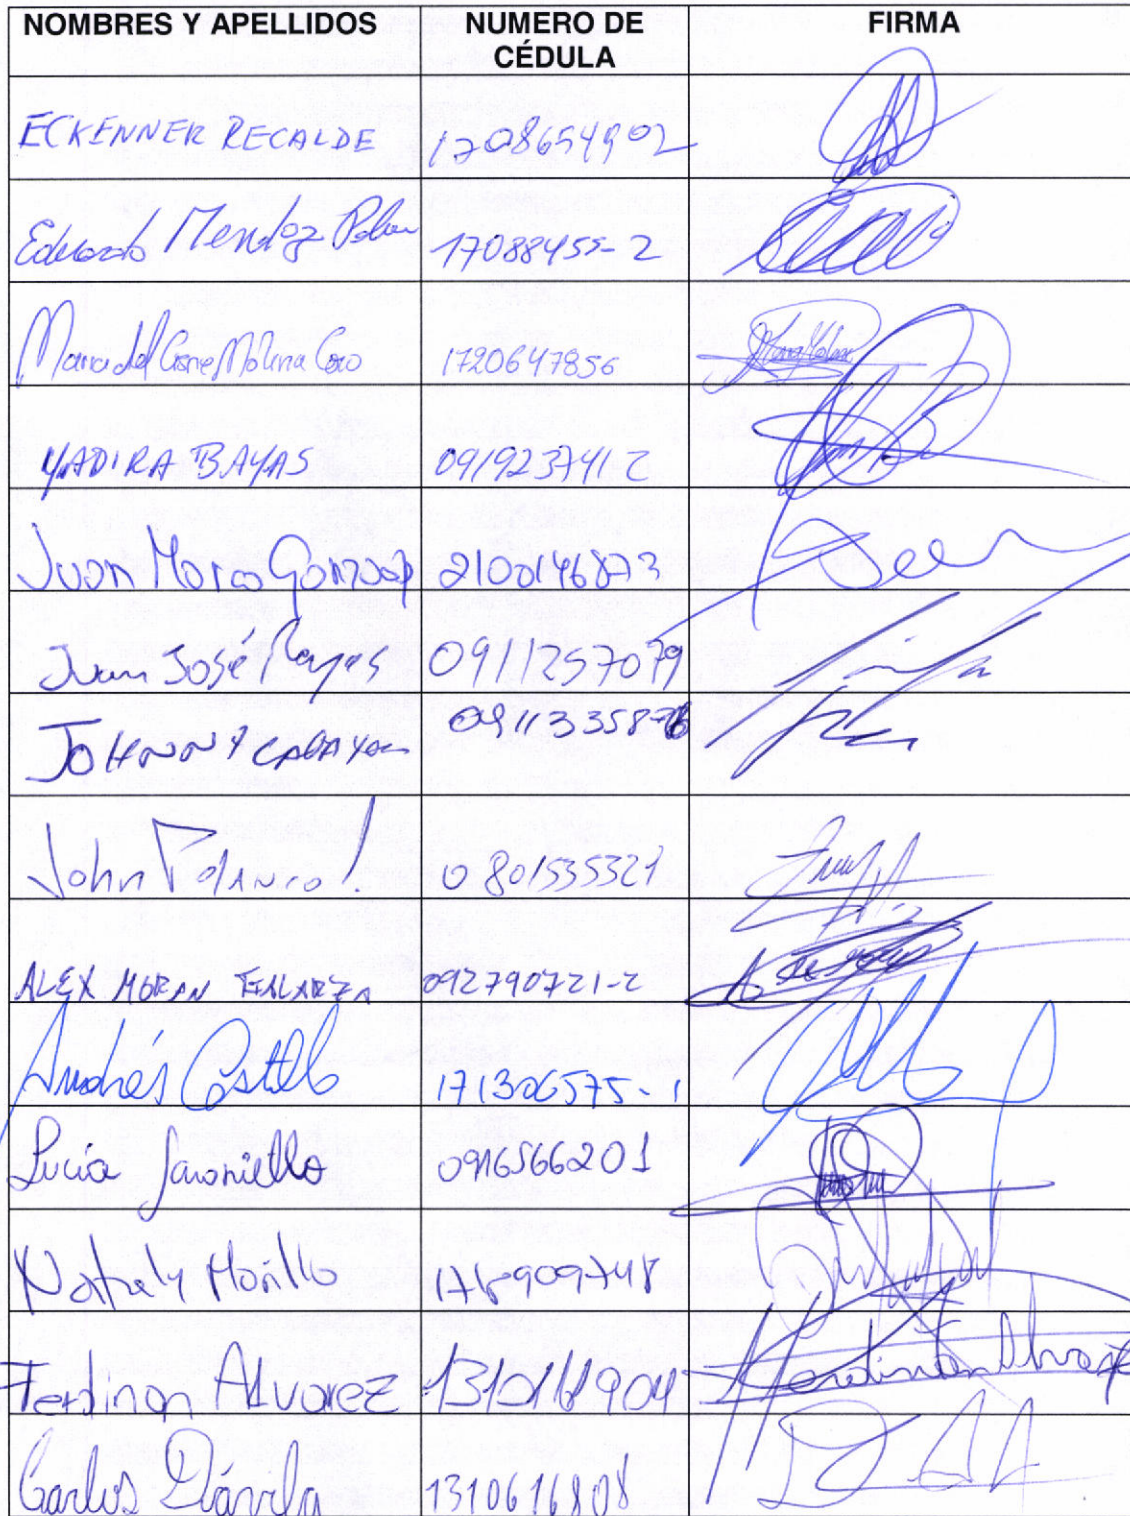 NOMBRES Y APELLIDOS NUMERO DE CÉDULA FIRMA
ECKENNER RECALDE 1708654902
Eduardo Mendoza 17088455-2
Maria del Cisne Molina Coro 1720647856
YADIRA BAYAS 091923741-2
Juan Marco 2100146873
Juan José Reyes 0911257079
JOHNNY
John Polanco 0801535321
ALEX MORAN GALARZA 092790721-2
Andrés Castillo 171306575-1
Lucía Jaramillo 0916566201
Nathaly Morillo
Ferdinan Alvarez
Carlos Dávila 1310616808